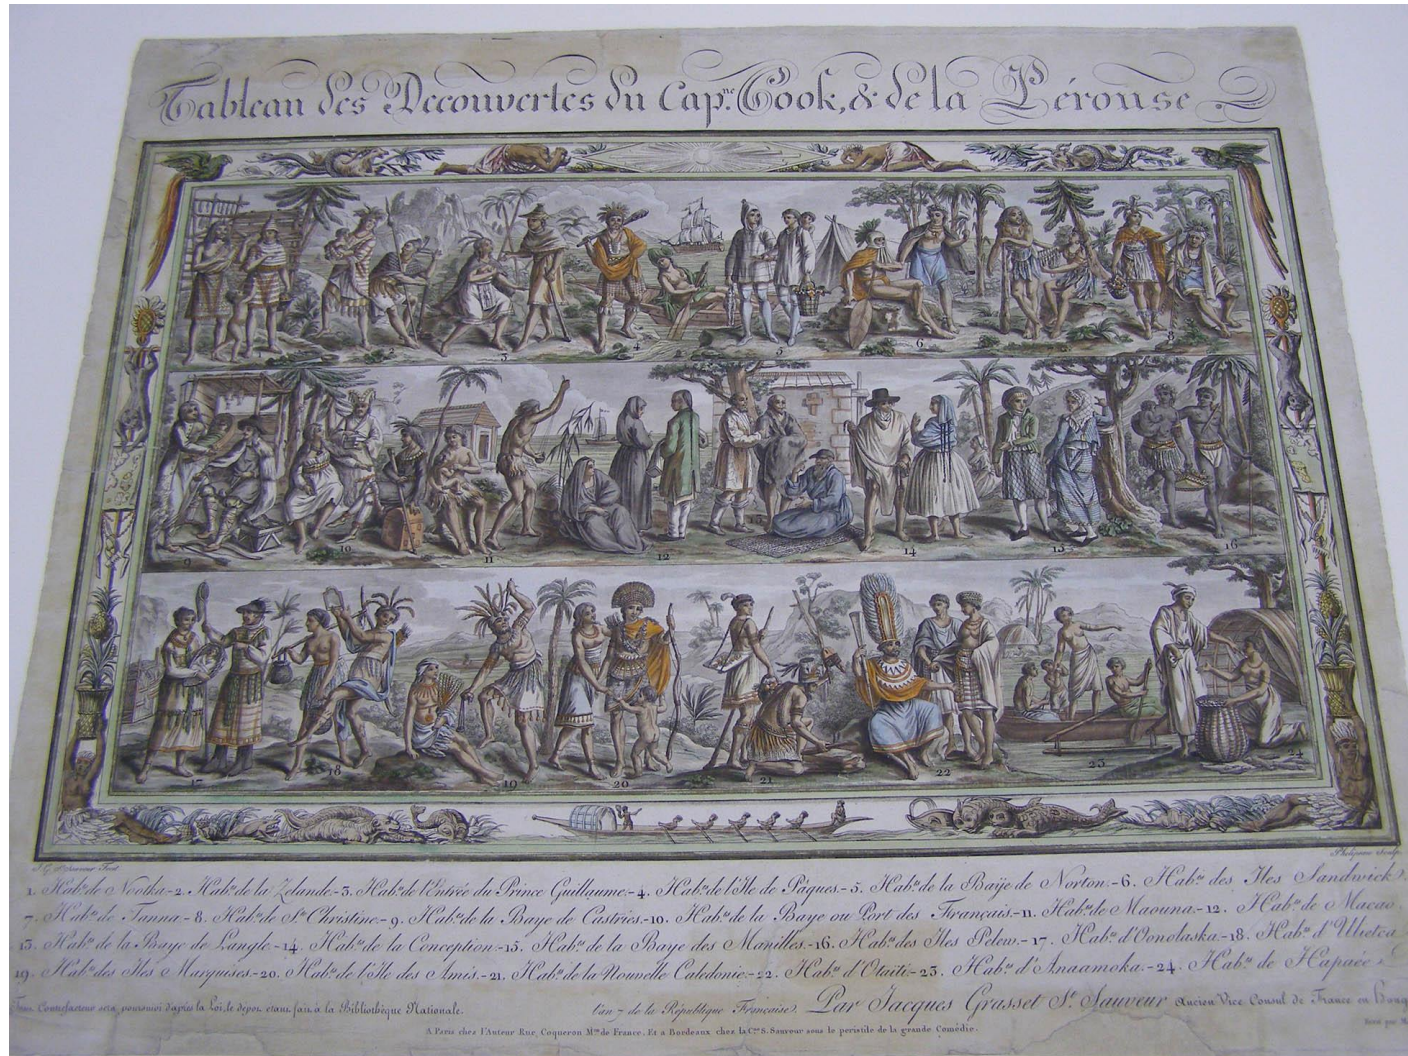 Tableau des Decouvertes du Cap.ne Cook, & de la Pérouse.
1 2 3 4 5 6 8
9 10 11 12 14 15 16
17 18 19 20 21 22 23 24
J. G. St. Sauveur Fecit Phelipeau Sculp.
1. Hab.ns de Nootka.-2. Hab.ns de la Zelande.-3. Hab.ns de l'Entrée du Prince Guillaume.-4. Hab.ns de l'Ile de Pâques.-5. Hab.ns de la Baÿe de Norton.-6. Hab.ns des Iles Sandwick.
7. Hab.ns de Tanna.-8. Hab.ns de Ste Christine.-9. Hab.ns de la Baye de Castries.-10. Hab.ns de la Baye ou Port des Français.-11. Hab.ns de Maouna.-12. Hab.ns de Macao.
13. Hab.ns de la Baye de Langle.-14. Hab.ns de la Conception.-15. Hab.ns de la Baye des Manilles.-16. Hab.ns des Iles Pelew.-17. Hab.ns d'Oonolaska.-18. Hab.ns d'Ulietea
19. Hab.ns des Iles Marquises.-20. Hab.ns de l'Ile des Amis.-21. Hab.ns de la Nouvelle Caledonie.-22. Hab.ns d'Otaiti.-23. Hab.ns d'Anaamoka.-24. Hab.ns de Hapaée
Tout Contrefacteur sera poursuivi d'après la Loi, le dépot etant fait à la Bibliothèque Nationale. l'an 7 de la République Française. Par Jacques Grasset St. Sauveur Ancien Vice Consul de France en Hong
A Paris chez l'Auteur Rue Coqueron Mon de France. Et a Bordeaux chez la Cne S. Sauveur sous le peristile de la grande Comédie.